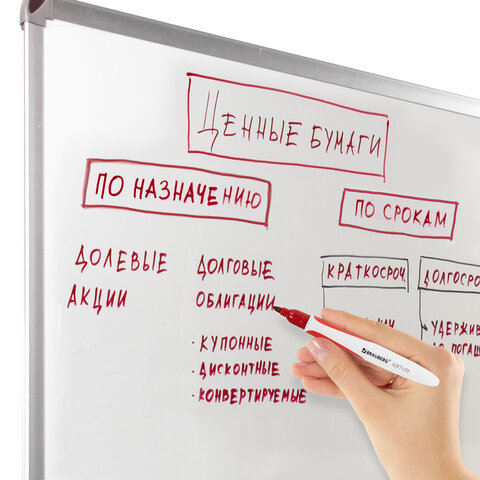 ЦЕННЫЕ БУМАГИ
ПО НАЗНАЧЕНИЮ
ПО СРОКАМ
ДОЛЕВЫЕ
АКЦИИ
ДОЛГОВЫЕ
ОБЛИГАЦИИ
· КУПОННЫЕ
· ДИСКОНТНЫЕ
· КОНВЕРТИРУЕМЫЕ
КРАТКОСРОЧ.
ДОЛГОСРО
УДЕРЖИВ
ДО ПОГАШ
BRAUBERG SOFT LITE